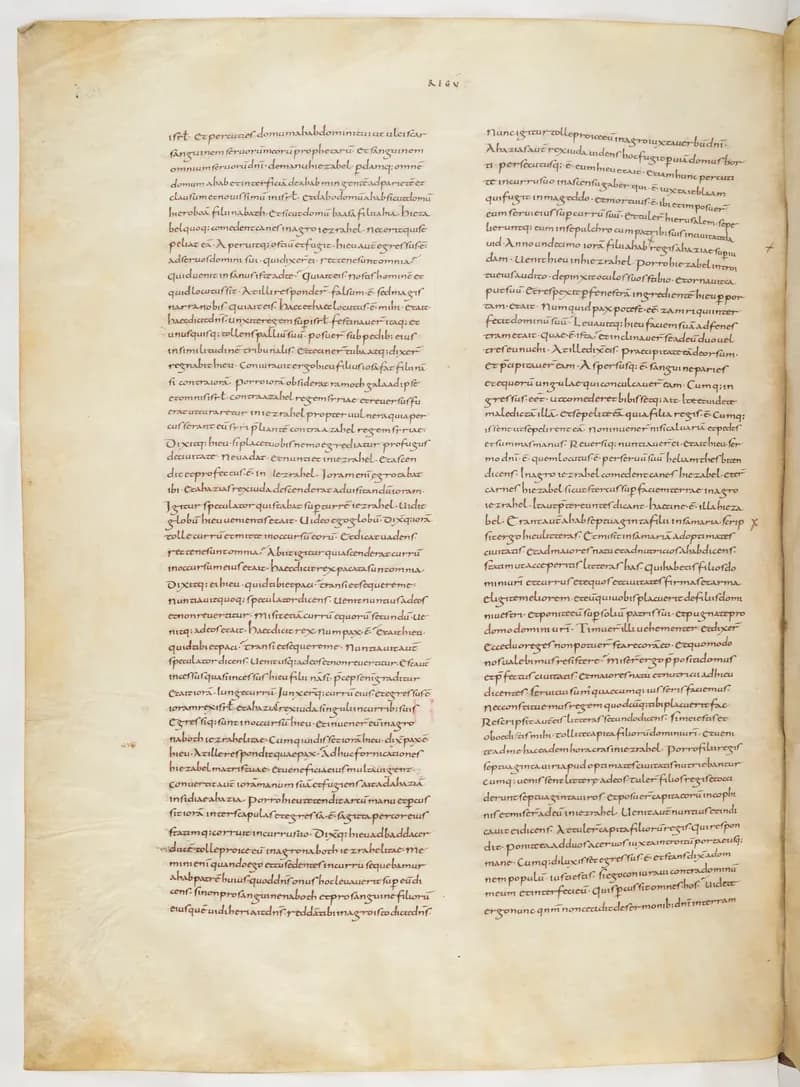 isrl. Et percuties domum ahab domini tui ut ulciscar
sanguinem servorum meorum prophetarum. Et sanguinem
omnium servorum dni. de manu hiezabel. pdamq; omne
domum ahab et interficiam de ahab mingente ad pariete et
clausum et novissimum in isrl. Et dabo domum ahab sicut domum
hieroboam filii nabath. Et sicut domum baasa filii ahia. Hieza
bel quoq; comedent canes in agro iezrahel. nec erit qui se
peliat eam. Aperuitq; ostium et fugit. hieu aut egressus e
ad servos domini sui. qui dixer ei. rectene sunt omnia.
Quid venit insanus iste ad te. Qui ait eis. Nostis hominem et
quid locutus sit. At illi responder. falsum e. sed magis
narra nobis. Qui ait eis. Haec et haec locutus e mihi. Et ait
haec dicit dns. unxi te regem sup isrl. festinaver itaq; et
unusquisq; tollens pallium suum. posuer sub pedib; eius
in similitudine tribunalis. Et cecinert tuba atq; dixer
regnabit hieu. Coniuravit ergo hieu filius iosafat filii nam
si contra ioram. Porro ioram obsiderat ramoth galaad ipse
et omnis isrl. contra azahel regem syriae et reversus fu
erat ut curaretur in iezrahel propter vulnera quia per
cusserant eum syri pliante contra azahel regem syriae.
Dixitq; hieu. si placet vobis nemo egrediatur profugus
de civitate. Ne vadat. et nuntiet in iezrahel. Et ascen
dit et profectus e in iezrahel. Ioram enim egrotabat
ibi. Et ahazias rex iuda descenderat ad visitandum ioram.
Igitur speculator qui stabat sup turre iezrahel. Vidit
globum hieu venientis et ait. Video ego globum. Dixitq; ioram
tolle currum et mitte in occursum eorum. Et dicat vadens
rectene sunt omnia. Abiit igitur qui ascenderat currum
in occursum eius et ait. haec dicit rex pacata sunt omnia.
Dixitq; ei hieu. quid tibi et paci. transi et sequere me.
Nuntiavit quoq; speculator dicens. Venit nuntius ad eos
et non revertitur. Misit etiam currum equorum secundum. Ve
nitq; ad eos et ait. Haec dicit rex. num pax e. Et ait hieu.
quid tibi et paci. transi et sequere me. Nuntiavit aut
speculator dicens. Venit usq; ad eos et non revertitur. Est aut
incessus quasi incessus hieu filii nasi. pceps enim graditur
Et ait ioram. Iunge currum. Iunxerq; currum eius et egressus e
ioram rex isrl. et ahazias rex iuda singuli in currib; suis
Egressiq; sunt in occursum hieu. Et invener eum in agro
naboth iezrahelitae. Cumq; vidisset ioram hieu dix. pax e
hieu. At ille respondit quae pax. Adhuc fornicationes
hiezabel matris tuae. et veneficia eius multa vigent.
Convertit aut ioram manum suam et fugiens ait ad ahaziam
insidiae ahazia. Porro hieu tetendit arcum manu et pcus
sit ioram inter scapulas et egressa e sagitta per cor eius
statimq; corruit in curru suo. Dixitq; hieu ad baddacer
duce. tolle proice eum in agro naboth iezrahelitae. Me
mini enim quando ego et tu sedentes in curru sequebamur
ahab patre huius quod dns onus hoc levaverit sup eum di
cens. si non pro sanguine naboth et pro sanguine filiorum
eius que vidi heri ait dns. reddam tibi in agro isto dicit dns.
Nunc igitur tolle proice eum in agro iuxta verbum dni.
Ahazias aut rex iuda videns hoc fugit p viam domus hor
ti. persecutusq; e eum hieu et ait. Etiam hunc percuti
te in curru suo in ascensu gaber qui e iuxta ieblaam
qui fugit in mageddo. et mortuus e ibi et imposuer
eum servi eius sup currum suum. Et tuler hierusalem. sepe
lieruntq; eum in sepulchro cum patrib; suis in civitate da
vid. Anno undecimo ioram filii ahab regis ahazias sup iu
dam. Venit hieu in hiezrahel. Porro hiezabel introi
tu eius audito. depinxit oculos suos stibio. Et ornavit ca
put suum. Et respexit p fenestram ingrediente hieu p por
tam. et ait. Numquid pax potest ee zamri qui inter
fecit dominum suum. Levavitq; hieu faciem suam ad fenes
tram et ait. Quae e ista. et inclinaver se ad eum duo vel
tres eunuchi. At ille dix eis. praecipitate eam deorsum.
Et pcipitaver eam. Aspersusq; e sanguine paries
et equorum ungulae qui conculcaver eam. Cumq; in
gressus eet. ut comederet biberetq; ait. Ite et videte
maledictam illam. Et sepelite eam quia filia regis e. Cumq;
issent ut sepelirent eam. Non invener nisi calvariam et pedes
et summas manus. Reversiq; nuntiaver ei. Et ait hieu. ser
mo dni e quem locutus e per servum suum heliam thesbiten
dicens. In agro iezrahel comedent canes hiezabel. et er
carnes hiezabel sicut stercus sup faciem terrae in agro
iezrahel. Ita ut ptereuntes dicant. haecine e illa hieza
bel. Erant aut ahab septuaginta filii in samaria. scrip
sit ergo hieu litteras. Et misit in samariam ad optimates
civitatis. Et ad maiores natu et ad nutricios ahab dicens.
Statim ut acceperitis litteras has. Qui habetis filios do
mini vri. et currus et equos et civitates firmas et arma.
eligite meliorem. et eum qui vobis placuerit de filiis dom
ni vestri. Et ponite eum sup solium patris sui. et pugnate pro
domo domini vri. Timuer illi vehementer et dixer.
Ecce duo reges non potuer stare coram eo. et quomodo
nos valebimus resistere. Miser ergo ppositi domus
et pfectus civitatis. Et maiores natu et nutricii ad hieu
dicentes. servi tui sumus quaecumq; iusseris faciemus.
Nec constituemus regem quodcumq; tibi placuerit fac.
Rescripsit aut eis litteras secundo dicens. Si mei estis et
oboeditis mihi. tollite capita filiorum domini vri. et veni
te ad me hac eadem hora cras in iezrahel. Porro filii regis
septuaginta viri apud optimates civitatis nutriebantur
cumq; venissent litterae ad eos. tuler filios regis et occi
derunt septuaginta viros. Et posuer capita eorum in cophi
nis et miser ad eum in iezrahel. Venit aut nuntius et indi
cavit ei dicens. Attuler capita filiorum regis. Qui respon
dit. ponite ad duos acervos iuxta introitum portae usq;
mane. Cumq; diluxisset egressus e. et stans dix ad om
nem populum. iusti estis. si ego coniuravi contra dominum
meum et interfeci eum. Quis pcussit omnes hos. Videte
ergo nunc qnm non cecidit de sermonib; dni in terram